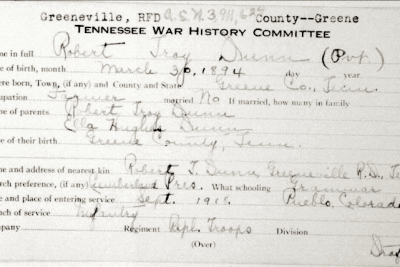 Greeneville, RFD A.S.N. 3,911,627 County--Greene
TENNESSEE WAR HISTORY COMMITTEE
me in full Robert Troy Dunn (Pvt.)
e of birth, month March 30, 1894 day year.
ere born, Town, (if any) and County and State Greene Co., Tenn.
upation Farmer married No If married, how many in family
e of parents Robert Troy Dunn
Ella Hughes Dunn
e of their birth Greene County, Tenn.
e and address of nearest kin Robert T. Dunn, Greeneville R.D., Te
rch preference, (if any) Cumberland Pres. What schooling Grammar
e and place of entering service Sept. 1918 Pueblo, Colorado
nch of service Infantry
pany Regiment Repl. Troops Division
(Over)